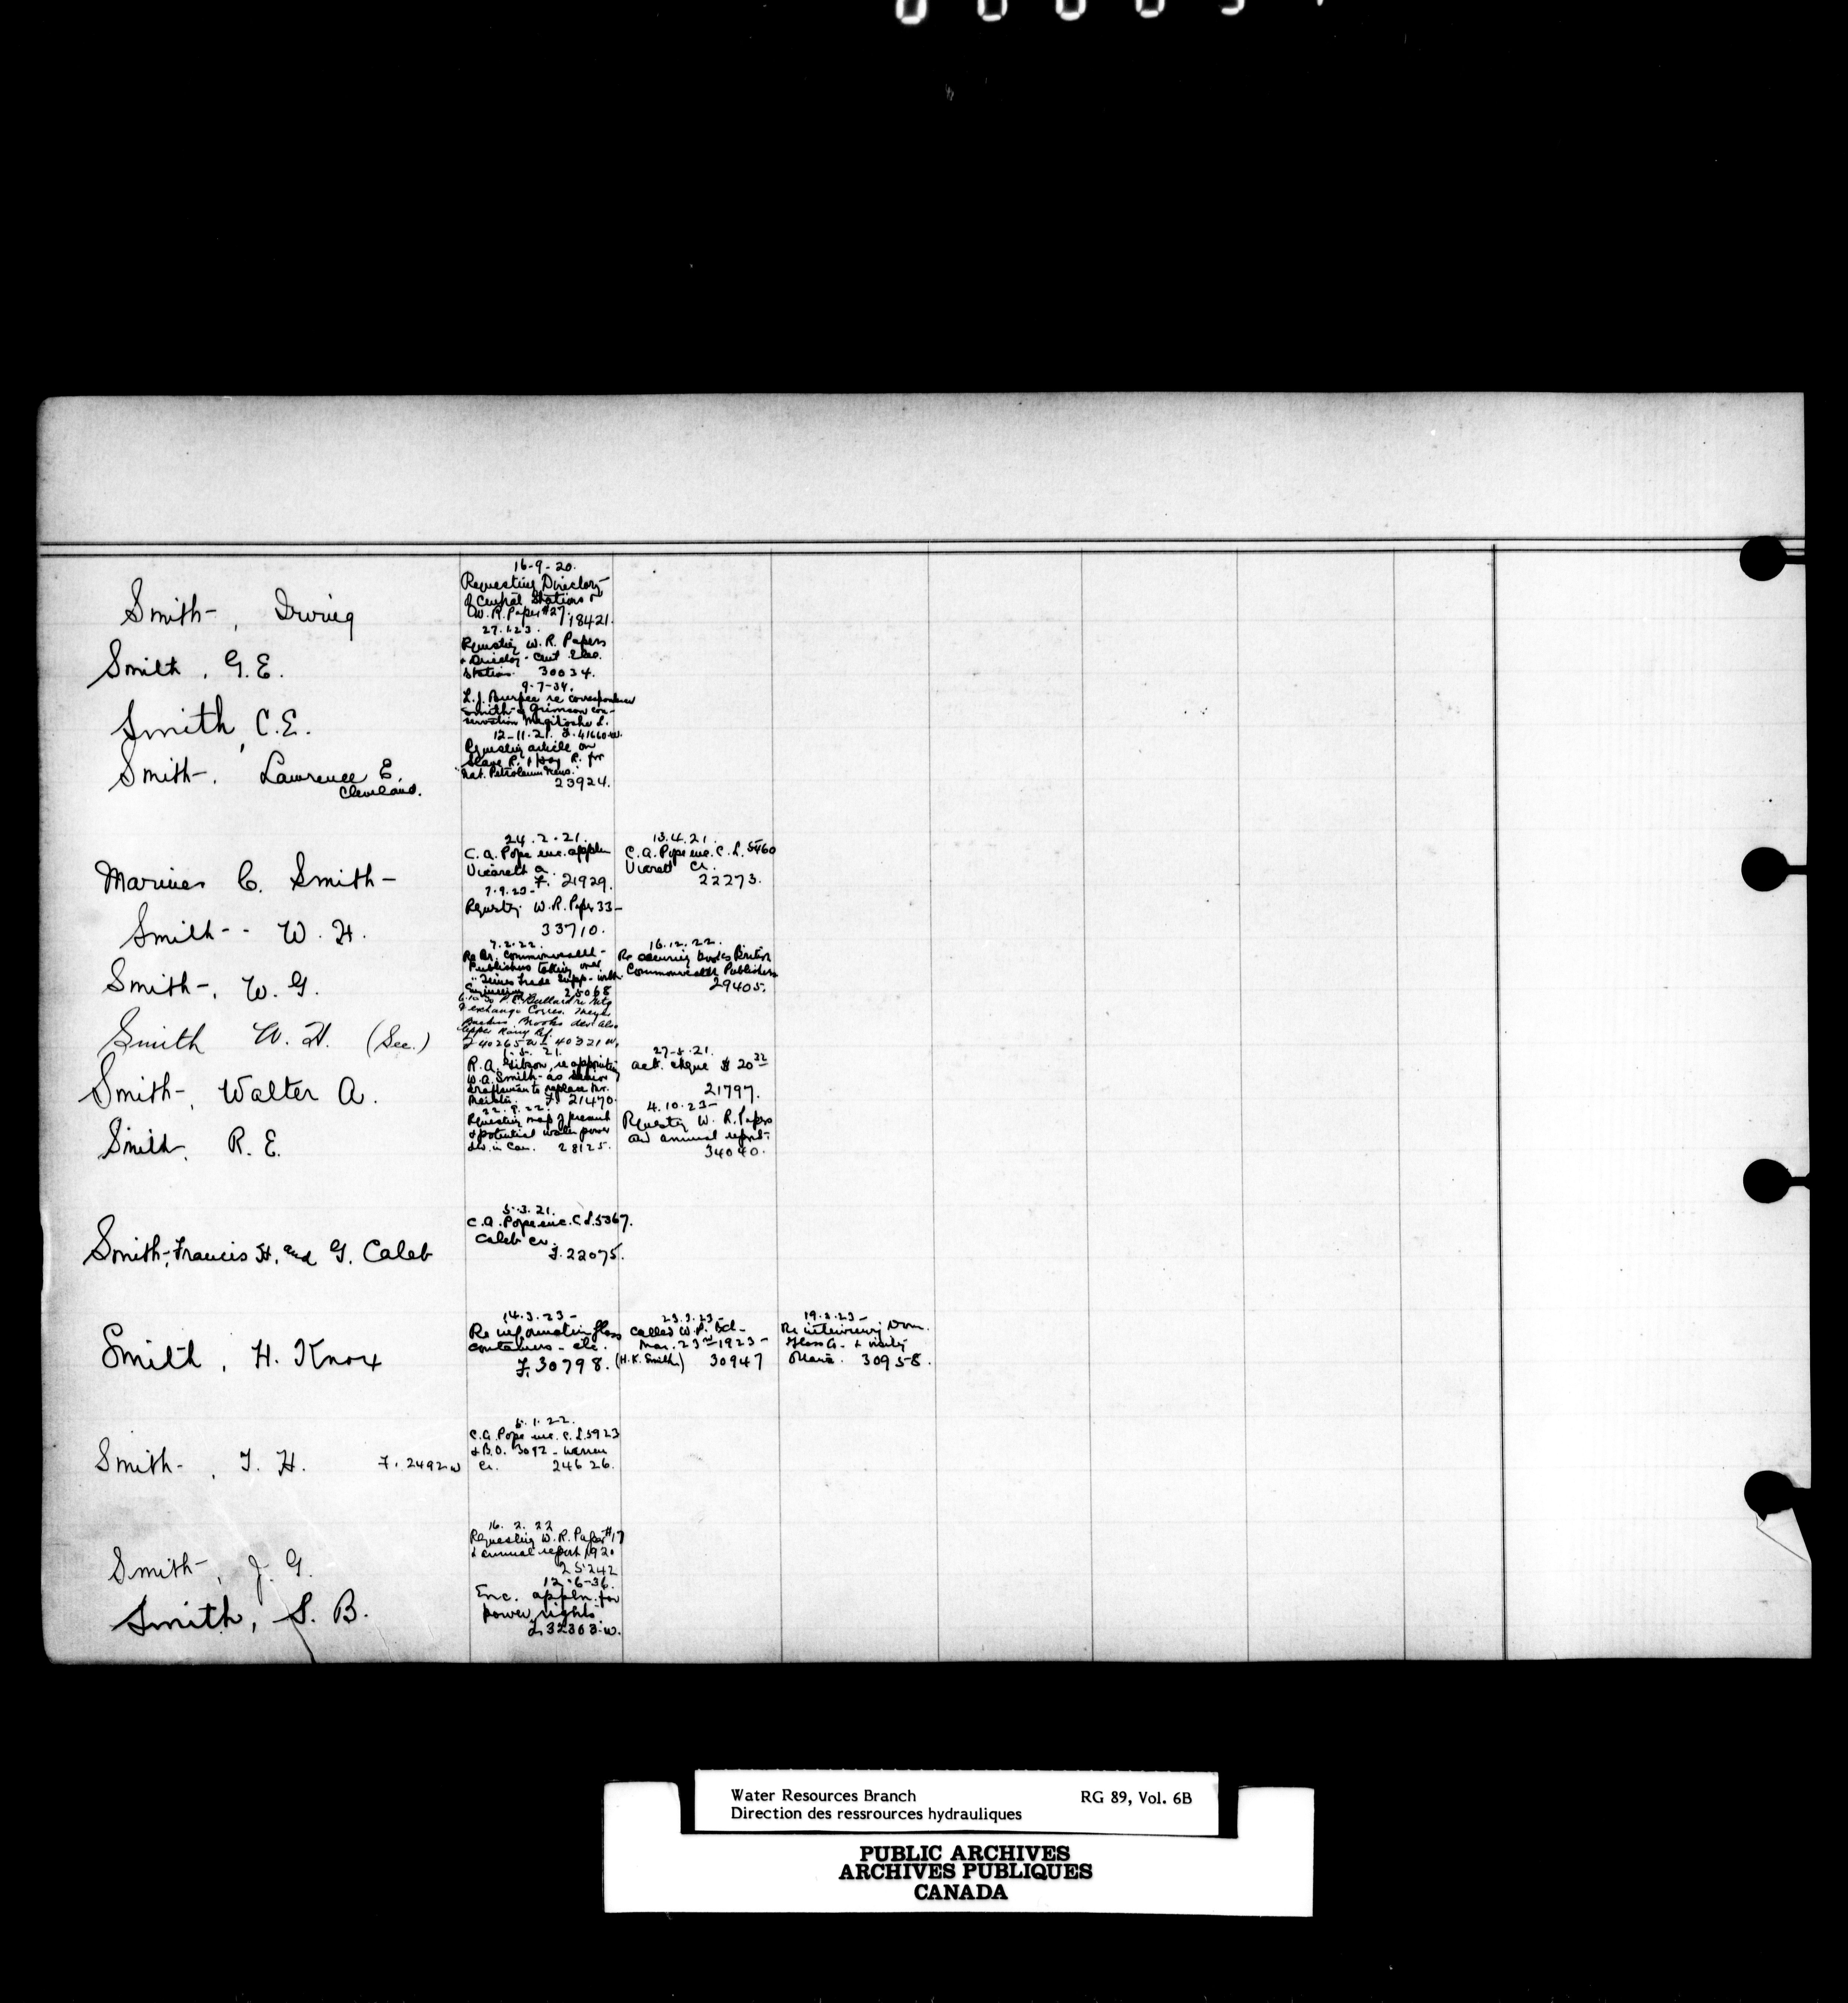 Smith, Irving
16-9-20.
Requesting Directory
of Central Stations &
W.R. Paper #27. 18421.
Smith, G.E.
27.1.23.
Requesting W.R. Papers
+ Directory - Cent. Elec.
Stations. 30034.
Smith, C.E.
9-7-34.
L.J. Burpee re correspondence
Smith & Grimson con-
servation Magitoshe L.
F. 41660-w.
Smith, Lawrence E.
Cleveland.
12-11-21.
Requesting article on
Slave R. & Hay R. for
"Nat. Petroleum News."
23924.
C. Smith
24.2.21.
C.A. Pope enc. appln
F. 21929.
13.4.21.
C.A. Pope enc. C.L. 5460
Cr.
22273.
Smith - W.H.
7.9.23-
Requestg W.R. Paper 33-
33710.
Smith, W.G.
7.2.22.
Re Br. Commonwealth
Publishers taking over
"Times Trade Supp. with
Engineering 25068
16.12.22.
Re securing books British
Commonwealth Publishers
29405.
Smith W.H. (Sec.)
exchange Corres.
Backus Brooks
Upper Rainy
F 40265-w F 40321 w.
Smith, Walter A.
1-5-21.
R.A. Gibson, re appointing
W.A. Smith as senior
draftsman to replace Mr.
F. 21470.
27-5-21.
act. cheque $20
21797.
Smith, R.E.
22.9.22.
Requesting map of present
& potential water power
dev. in Can. 28125.
4.10.23-
Requestg W.R. Papers
and annual report.
34040.
Smith, Francis H. and G. Caleb
5.3.21.
C.A. Pope enc. C.L. 5367.
Caleb Cr.
F. 22075.
Smith, H. Knox
14.3.23-
Re information glass
containers - etc.
F. 30798.
23.3.23-
Called W.P. Bd.
Mar. 23rd 1923-
(H.K. Smith) 30947
19.3.23-
Re interviewing Dom.
Glass Co. & visiting
Ottawa. 30958.
Smith, T.H. F. 2492 w
5.1.22.
C.A. Pope enc. C.L. 5923
& B.O. 3092 - Warren
Cr. 24626.
Smith, J.G.
16.2.22
Requesting W.R. Paper #17
& annual report 1920
25242
Smith, S.B.
12-6-36.
Enc. appln. for
power rights.
F. 32303-w.
Water Resources Branch RG 89, Vol. 6B
Direction des ressrources hydrauliques
PUBLIC ARCHIVES
ARCHIVES PUBLIQUES
CANADA